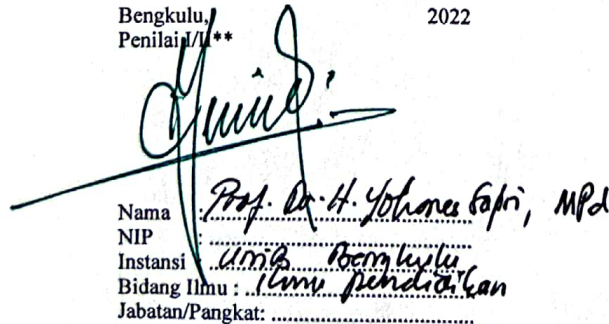 Bengkulu, 2022
Penilai I/II**
Nama : Prof. Dr. H. Yohanes Sapri, MPd
NIP :
Instansi : UNIB Bengkulu
Bidang Ilmu : Ilmu pendidikan
Jabatan/Pangkat: